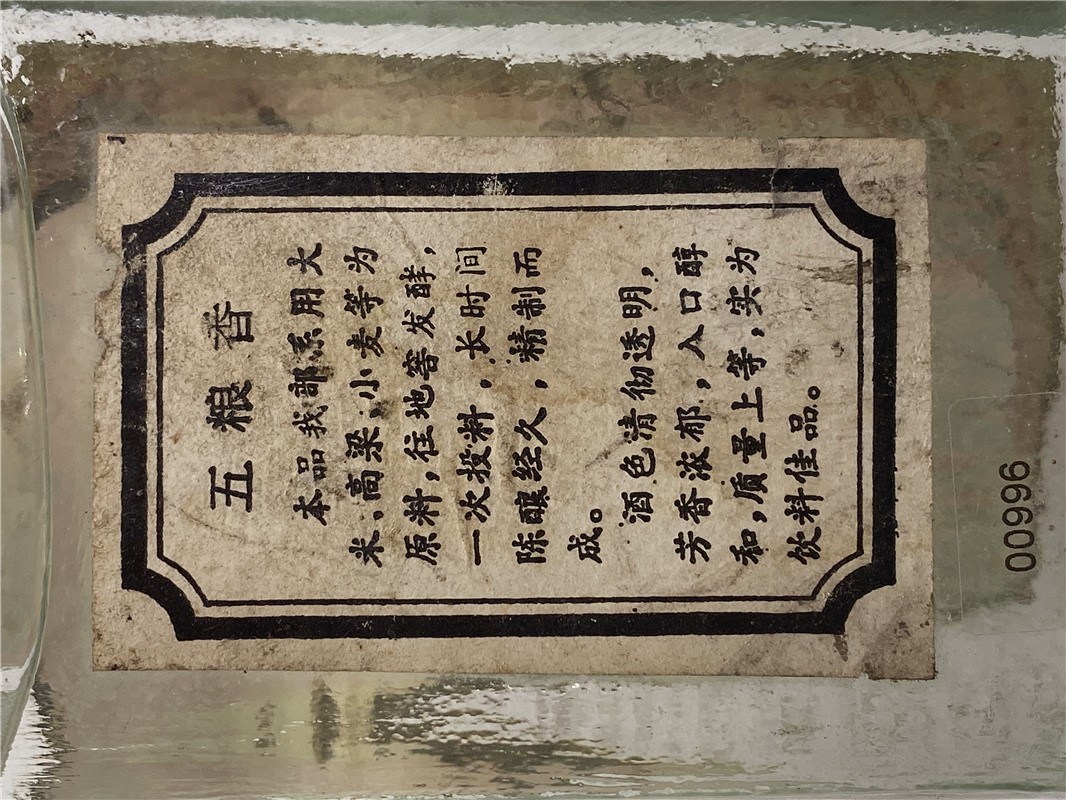 五粮香
本品我部系用大
米、高梁，小麦等为
原料，往地窖发酵，
一次投料，长时间
陈酿经久，精制而
成。
酒色清彻透明，
芳香浓郁，入口醇
和，质量上等，实为
饮料佳品。
009966